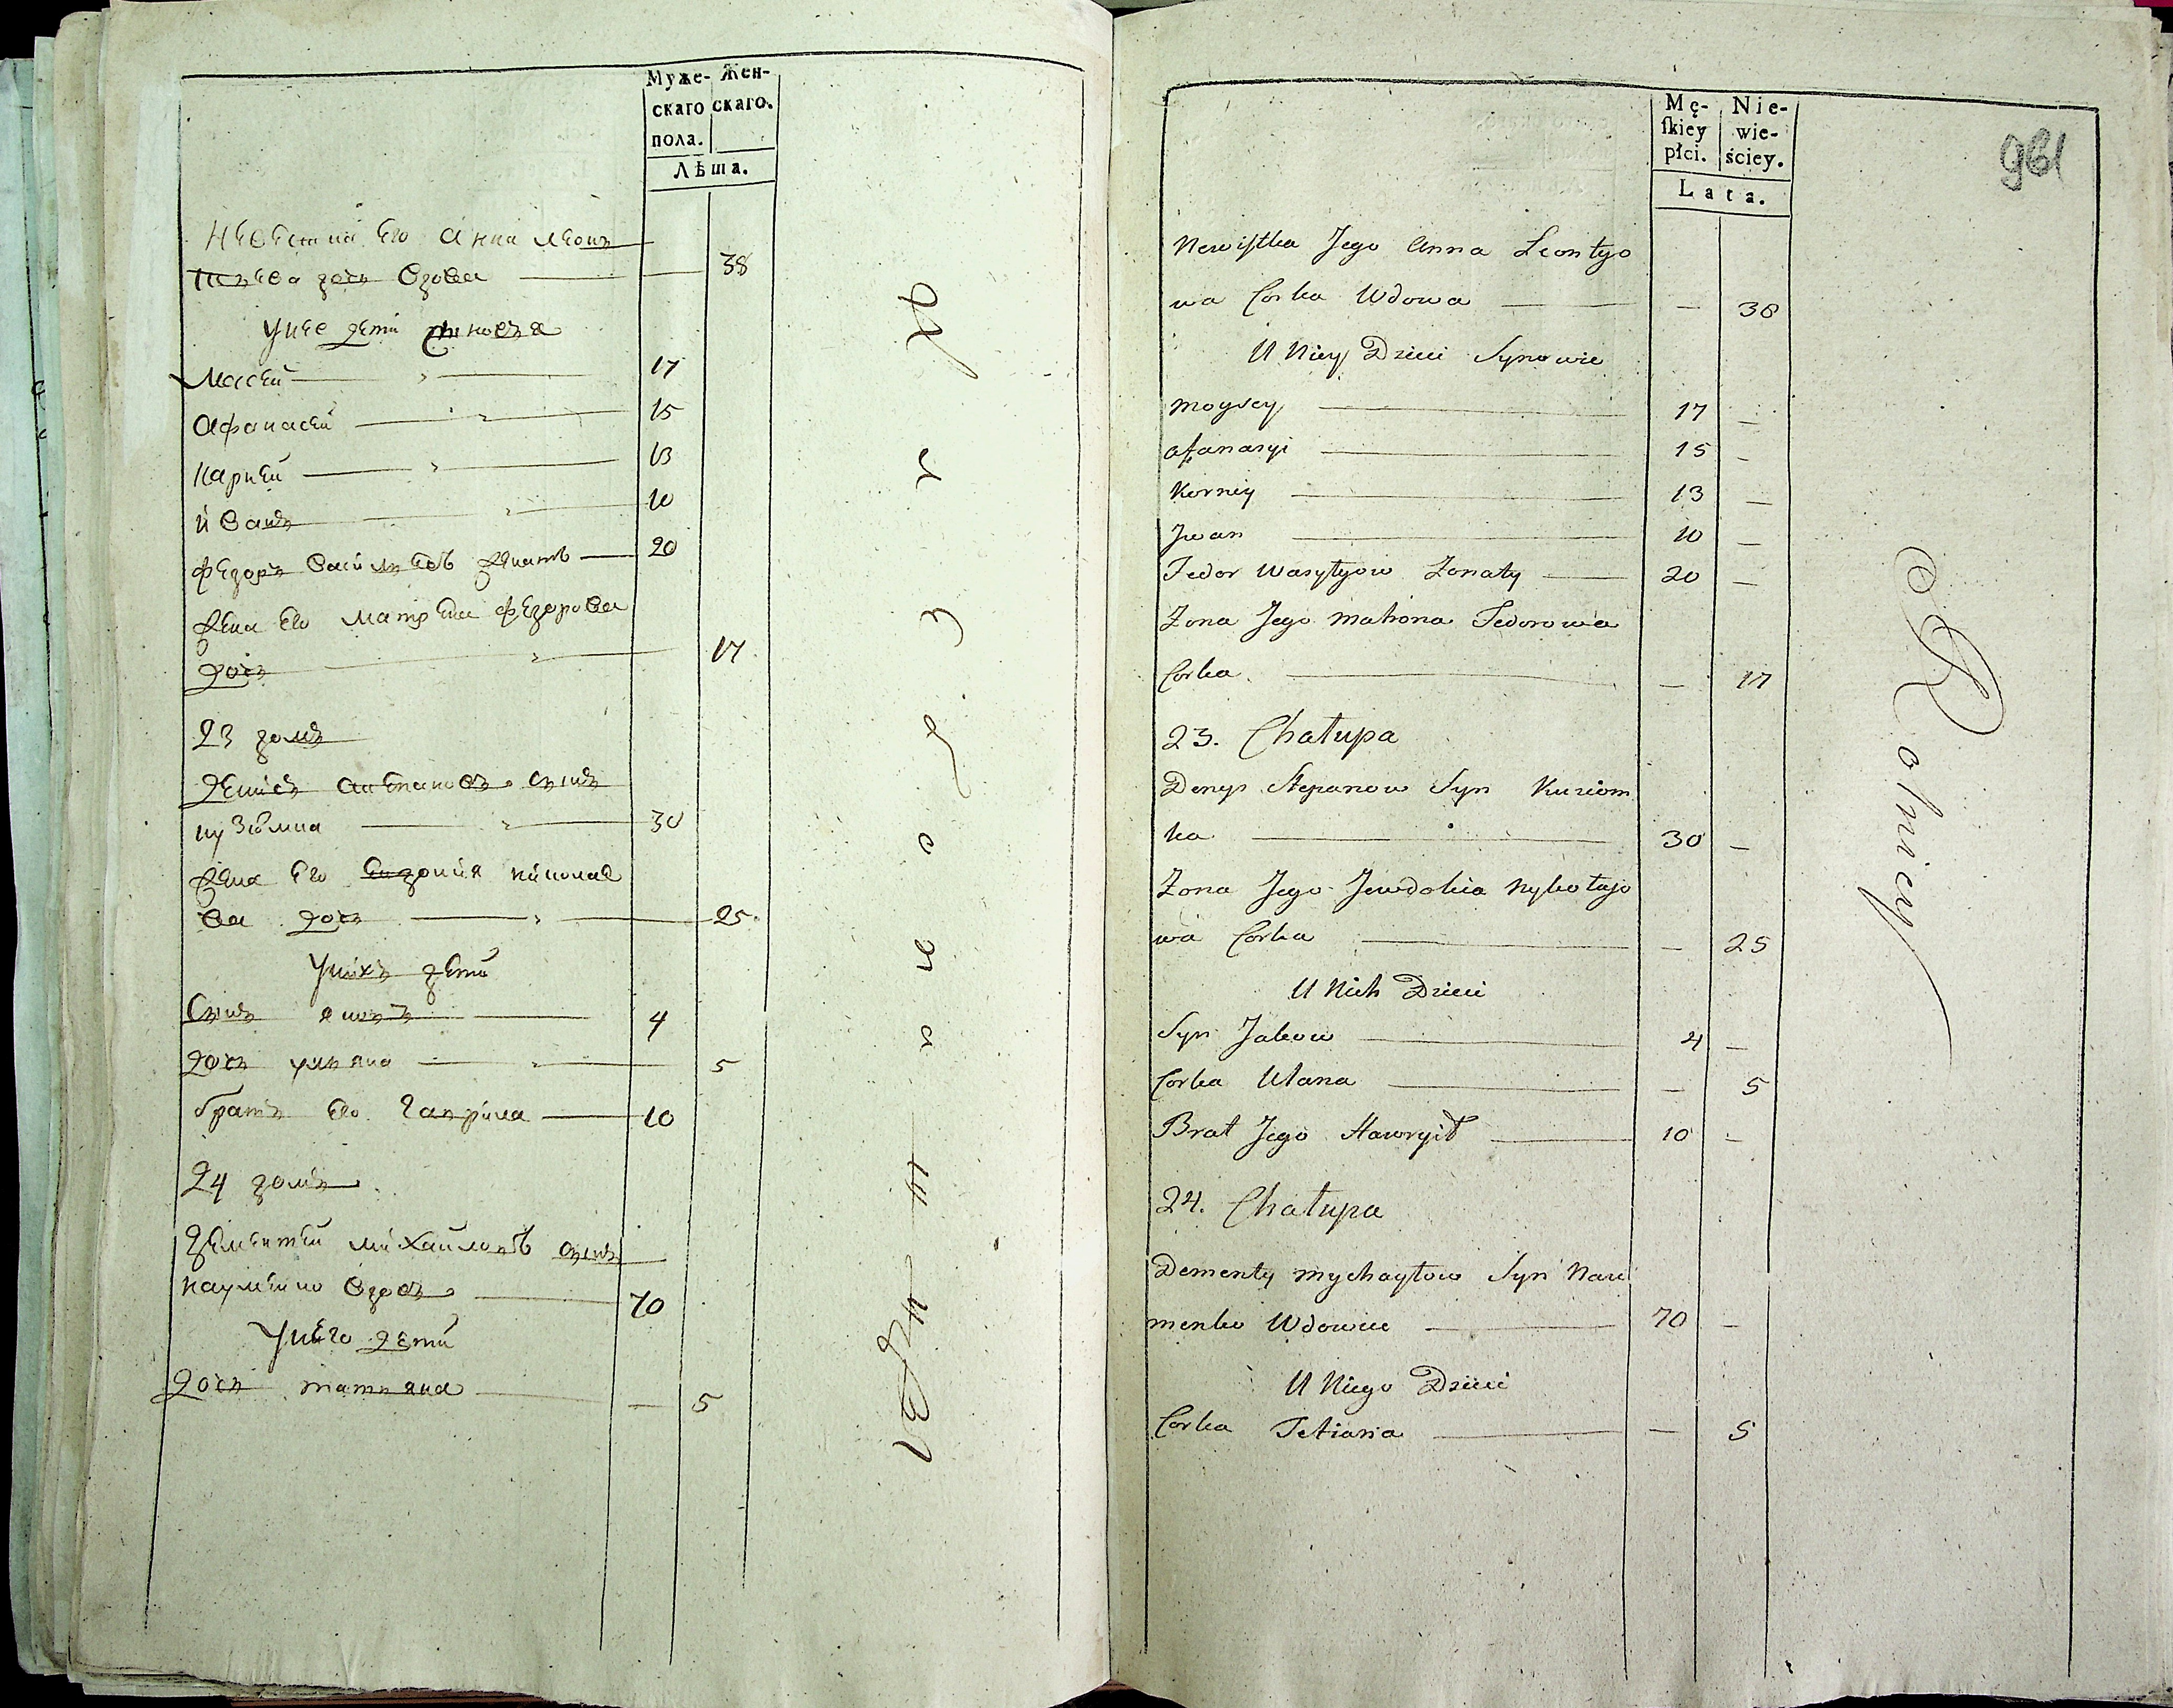 Муже- Жен-
скаго скаго.
пола.
Лѣта.
Невестка Его Анна Леонъ
тьева дочь вдова — 38
Унее дети сыновья
Мосей — 17
Афанасей — 15
Карней — 13
Иванъ — 10
Федоръ Васильевъ женатъ — 20
Жена Его Матрена Федорова
дочь — 17
23 домъ
Денисъ Степановъ сынъ
Кузiомка — 30
Жена Его Евдокия Николае
ва дочь — 25
Унихъ дети
Сынъ Яковъ — 4
дочь Ульяна — 5
братъ Его Гаврила — 10
24 домъ
Дементей Михайловъ сынъ
Науменко вдовъ — 70
Унего дети
дочь Татьяна — — 5
Mę- Nie-
skiey wie-
płci. ściey.
Lata.
961
Newistka Jego Anna Leontyo
wa Corka Wdowa — — 38
U Niey Dzieci Synowie
Moysey — 17 —
Afanasyi — 15 —
Korniey — 13 —
Jwan — 10 —
Fedor Wasylyow Zonaty — 20 —
Zona Jego Matrona Fedorowa
Corka — — 17
23. Chałupa
Denys Stepanow Syn Kuziom
ka — 30 —
Zona Jego Jewdokia Nykołajo
wa Corka — — 25
U Nich Dzieci
Syn Jakow — 4 —
Corka Ulana — — 5
Brat Jego Hawryił — 10 —
24. Chałupa
Dementy Mychayłow Syn Nau
menko Wdowiec — 70 —
U Niego Dzieci
Corka Tetiana — — 5